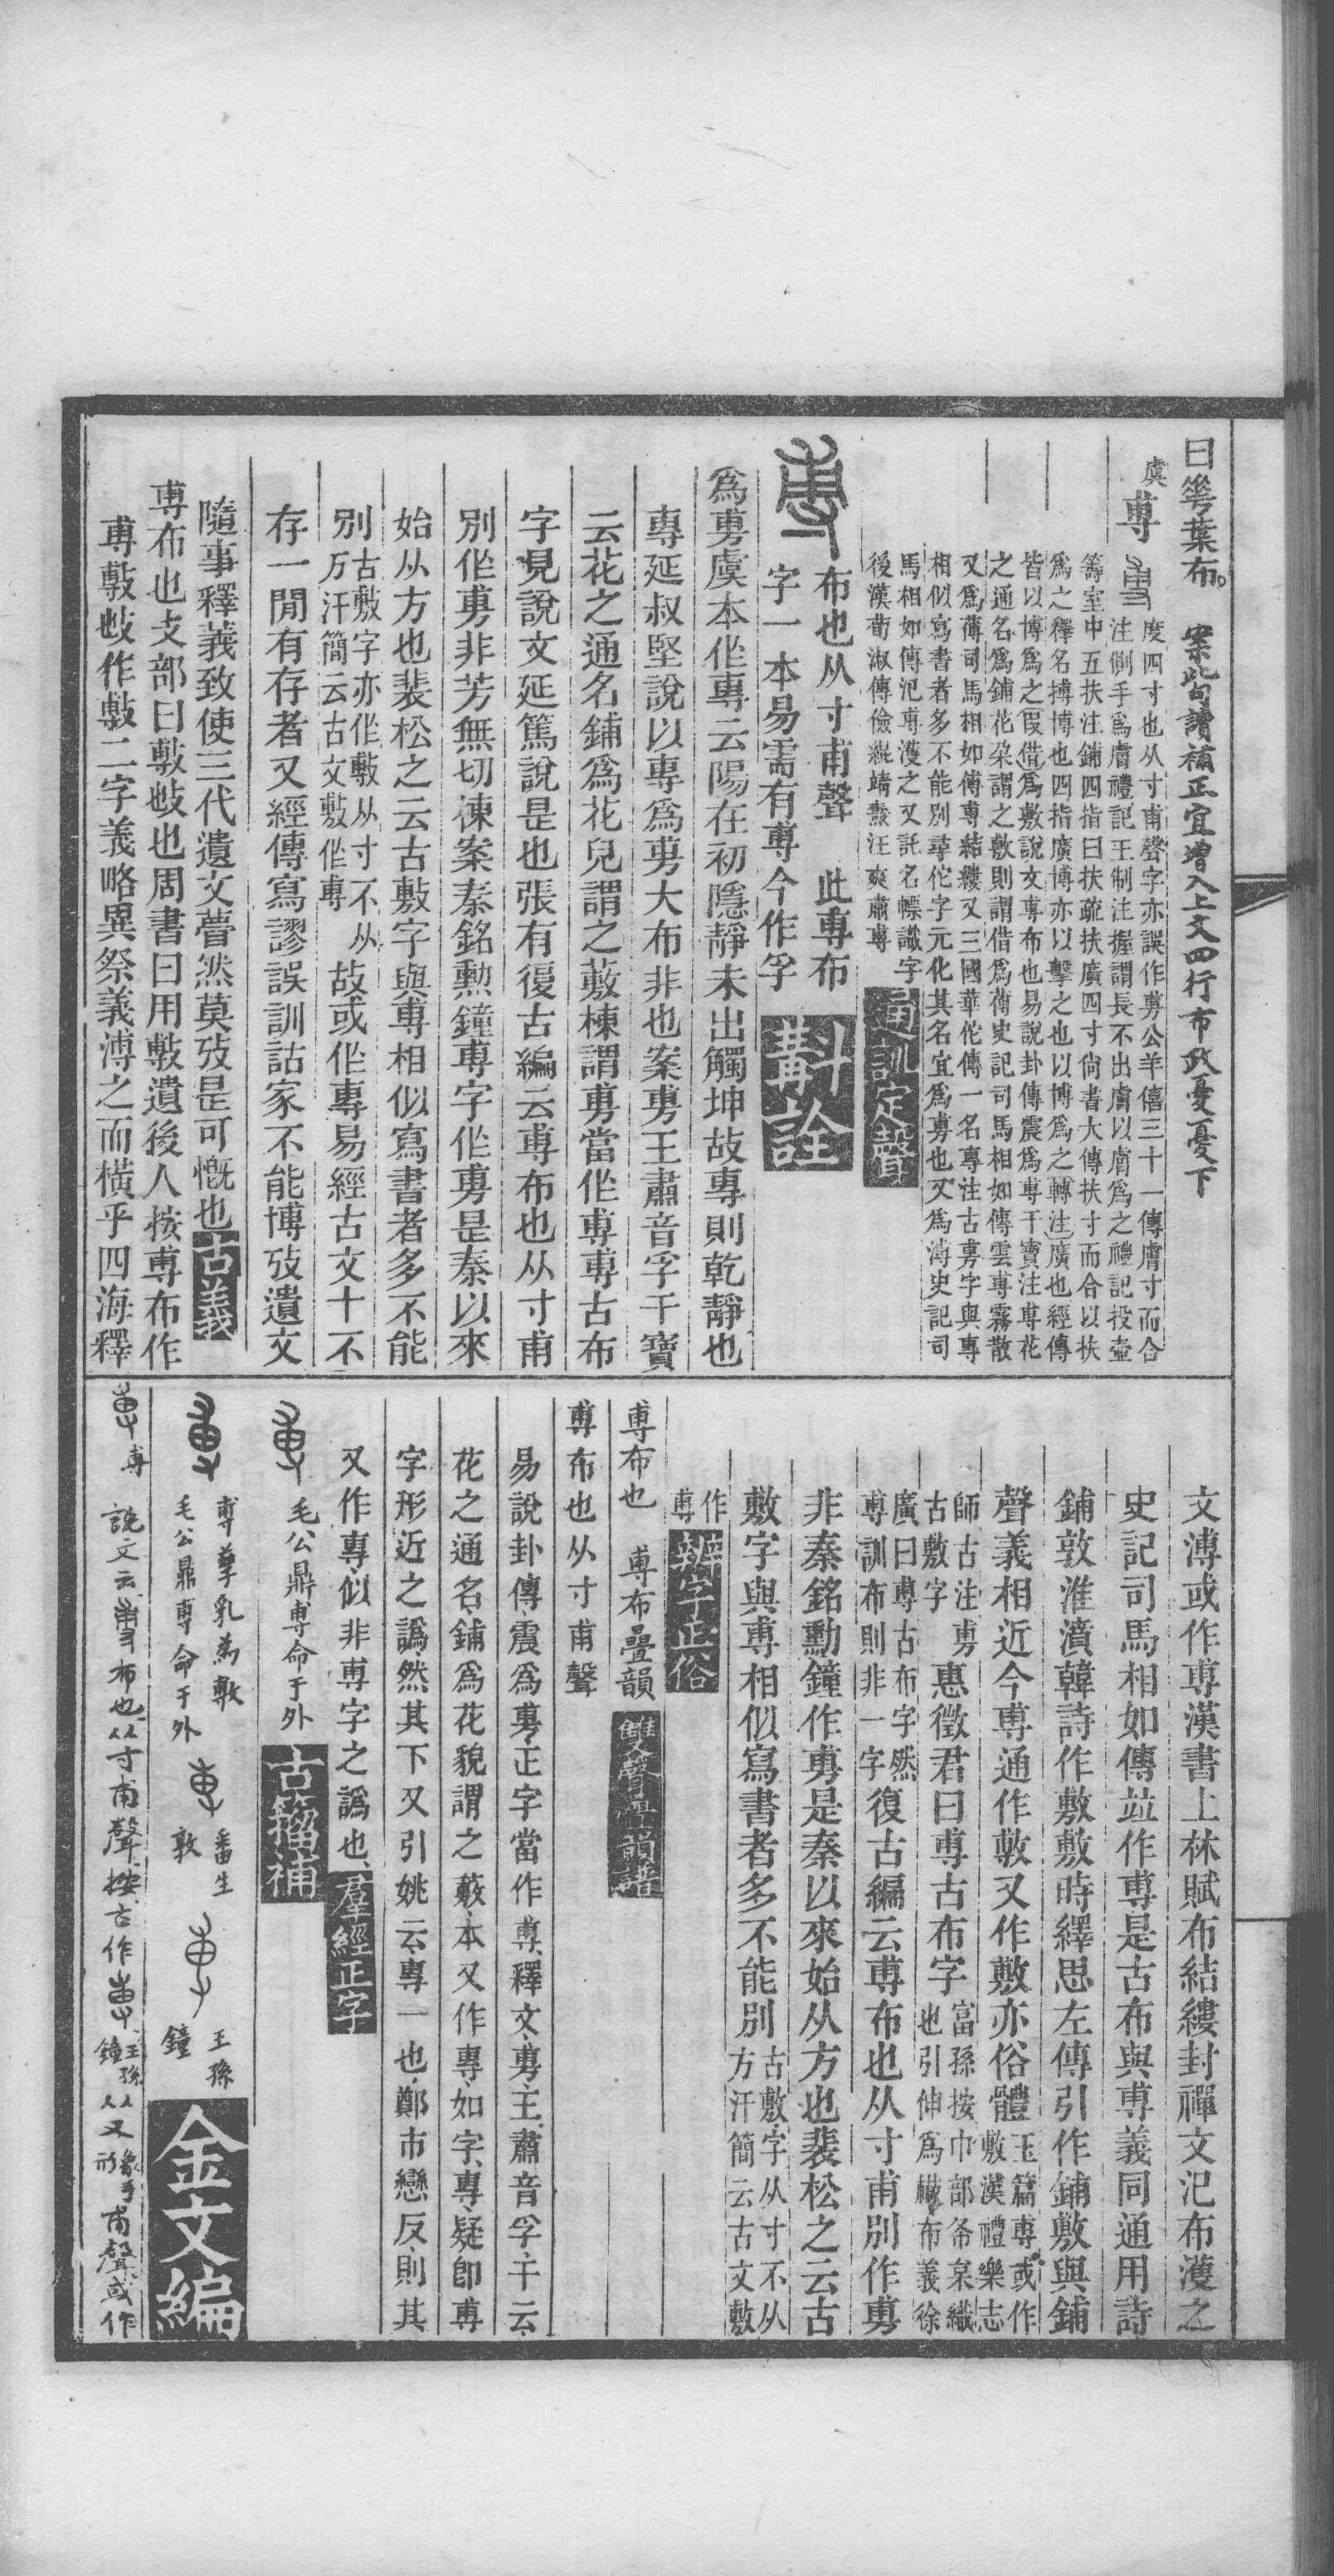 曰䓇葉布。 案此句讀補正宜增入上文四行布政憂憂下
虞 尃
度四寸也从寸甫聲字亦誤作旉公羊僖三十一傳膚寸而合
注側手爲膚禮記王制注握謂長不出膚以膚爲之禮記投壺
籌室中五扶注鋪四指曰扶疏扶廣四寸尙書大傳扶寸而合以扶
爲之釋名搏博也四指廣博亦以擊之也以博爲之轉注廣也經傳
皆以博爲之叚借爲敷說文尃布也易說卦傳震爲尃干寶注尃花
之通名爲鋪花朵謂之敷則謂借爲荷史記司馬相如傳雲尃霧散
又爲薄司馬相如傳尃結縷又三國華佗傳一名尃注古旉字與專
相似寫書者多不能別尋佗字元化其名宜爲旉也又爲溥史記司
馬相如傳汜尃濩之又託名幖識字
後漢荀淑傳儉緄靖燾汪爽肅尃
通訓定聲
布也从寸甫聲 此尃布
字一本易需有尃今作孚
斠詮
爲旉虞本作專云陽在初隱靜未出觸坤故專則乾靜也
專延叔堅說以專爲旉大布非也案旉王肅音孚干寶
云花之通名鋪爲花皃謂之蔌棟謂旉當作尃尃古布
字見說文延篤說是也張有復古編云尃布也从寸甫
別作旉非芳無切棟案秦銘勳鐘尃字作旉是秦以來
始从方也裴松之云古敷字與專相似寫書者多不能
別
古敷字亦作敷从寸不从
方汗簡云古文敷作尃
故或作專易經古文十不
存一閒有存者又經傳寫謬誤訓詁家不能博攷遺文
隨事釋義致使三代遺文瞢然莫攷是可慨也
古義
尃布也攴部曰敷𢻱也周書曰用敷遺後人按尃布作
尃敷𢻱作敷二字義略異祭義溥之而橫乎四海釋
文溥或作尃漢書上林賦布結縷封禪文汜布濩之
史記司馬相如傳竝作尃是古布與尃義同通用詩
鋪敦淮濆韓詩作敷敷時繹思左傳引作鋪敷與鋪
聲義相近今尃通作敷又作敷亦俗體
玉篇尃或作
敷漢禮樂志
師古注旉
古敷字
惠徵君曰尃古布字
富孫按巾部㠲枲織
也引伸爲㡇布義徐
廣曰尃古布字然
尃訓布則非一字
復古編云尃布也从寸甫別作旉
非秦銘勳鐘作旉是秦以來始从方也裴松之云古
敷字與專相似寫書者多不能別
古敷字从寸不从
方汗簡云古文敷
作
尃
辨字正俗
尃布也 尃布疊韻
雙聲疊韻譜
尃布也从寸甫聲
易說卦傳震爲旉正字當作尃釋文旉王肅音孚干云
花之通名鋪爲花貌謂之蔌本又作專如字專疑卽尃
字形近之譌然其下又引姚云專一也鄭市戀反則其
又作專似非尃字之譌也
羣經正字
毛公鼎尃命于外
古籀補
尃孳乳爲敷
毛公鼎尃命于外
番生
敦
王孫
鐘
金文編
尃 說文云尃布也从寸甫聲按古作
王孫
鐘
从又
象手
形
甫聲或作